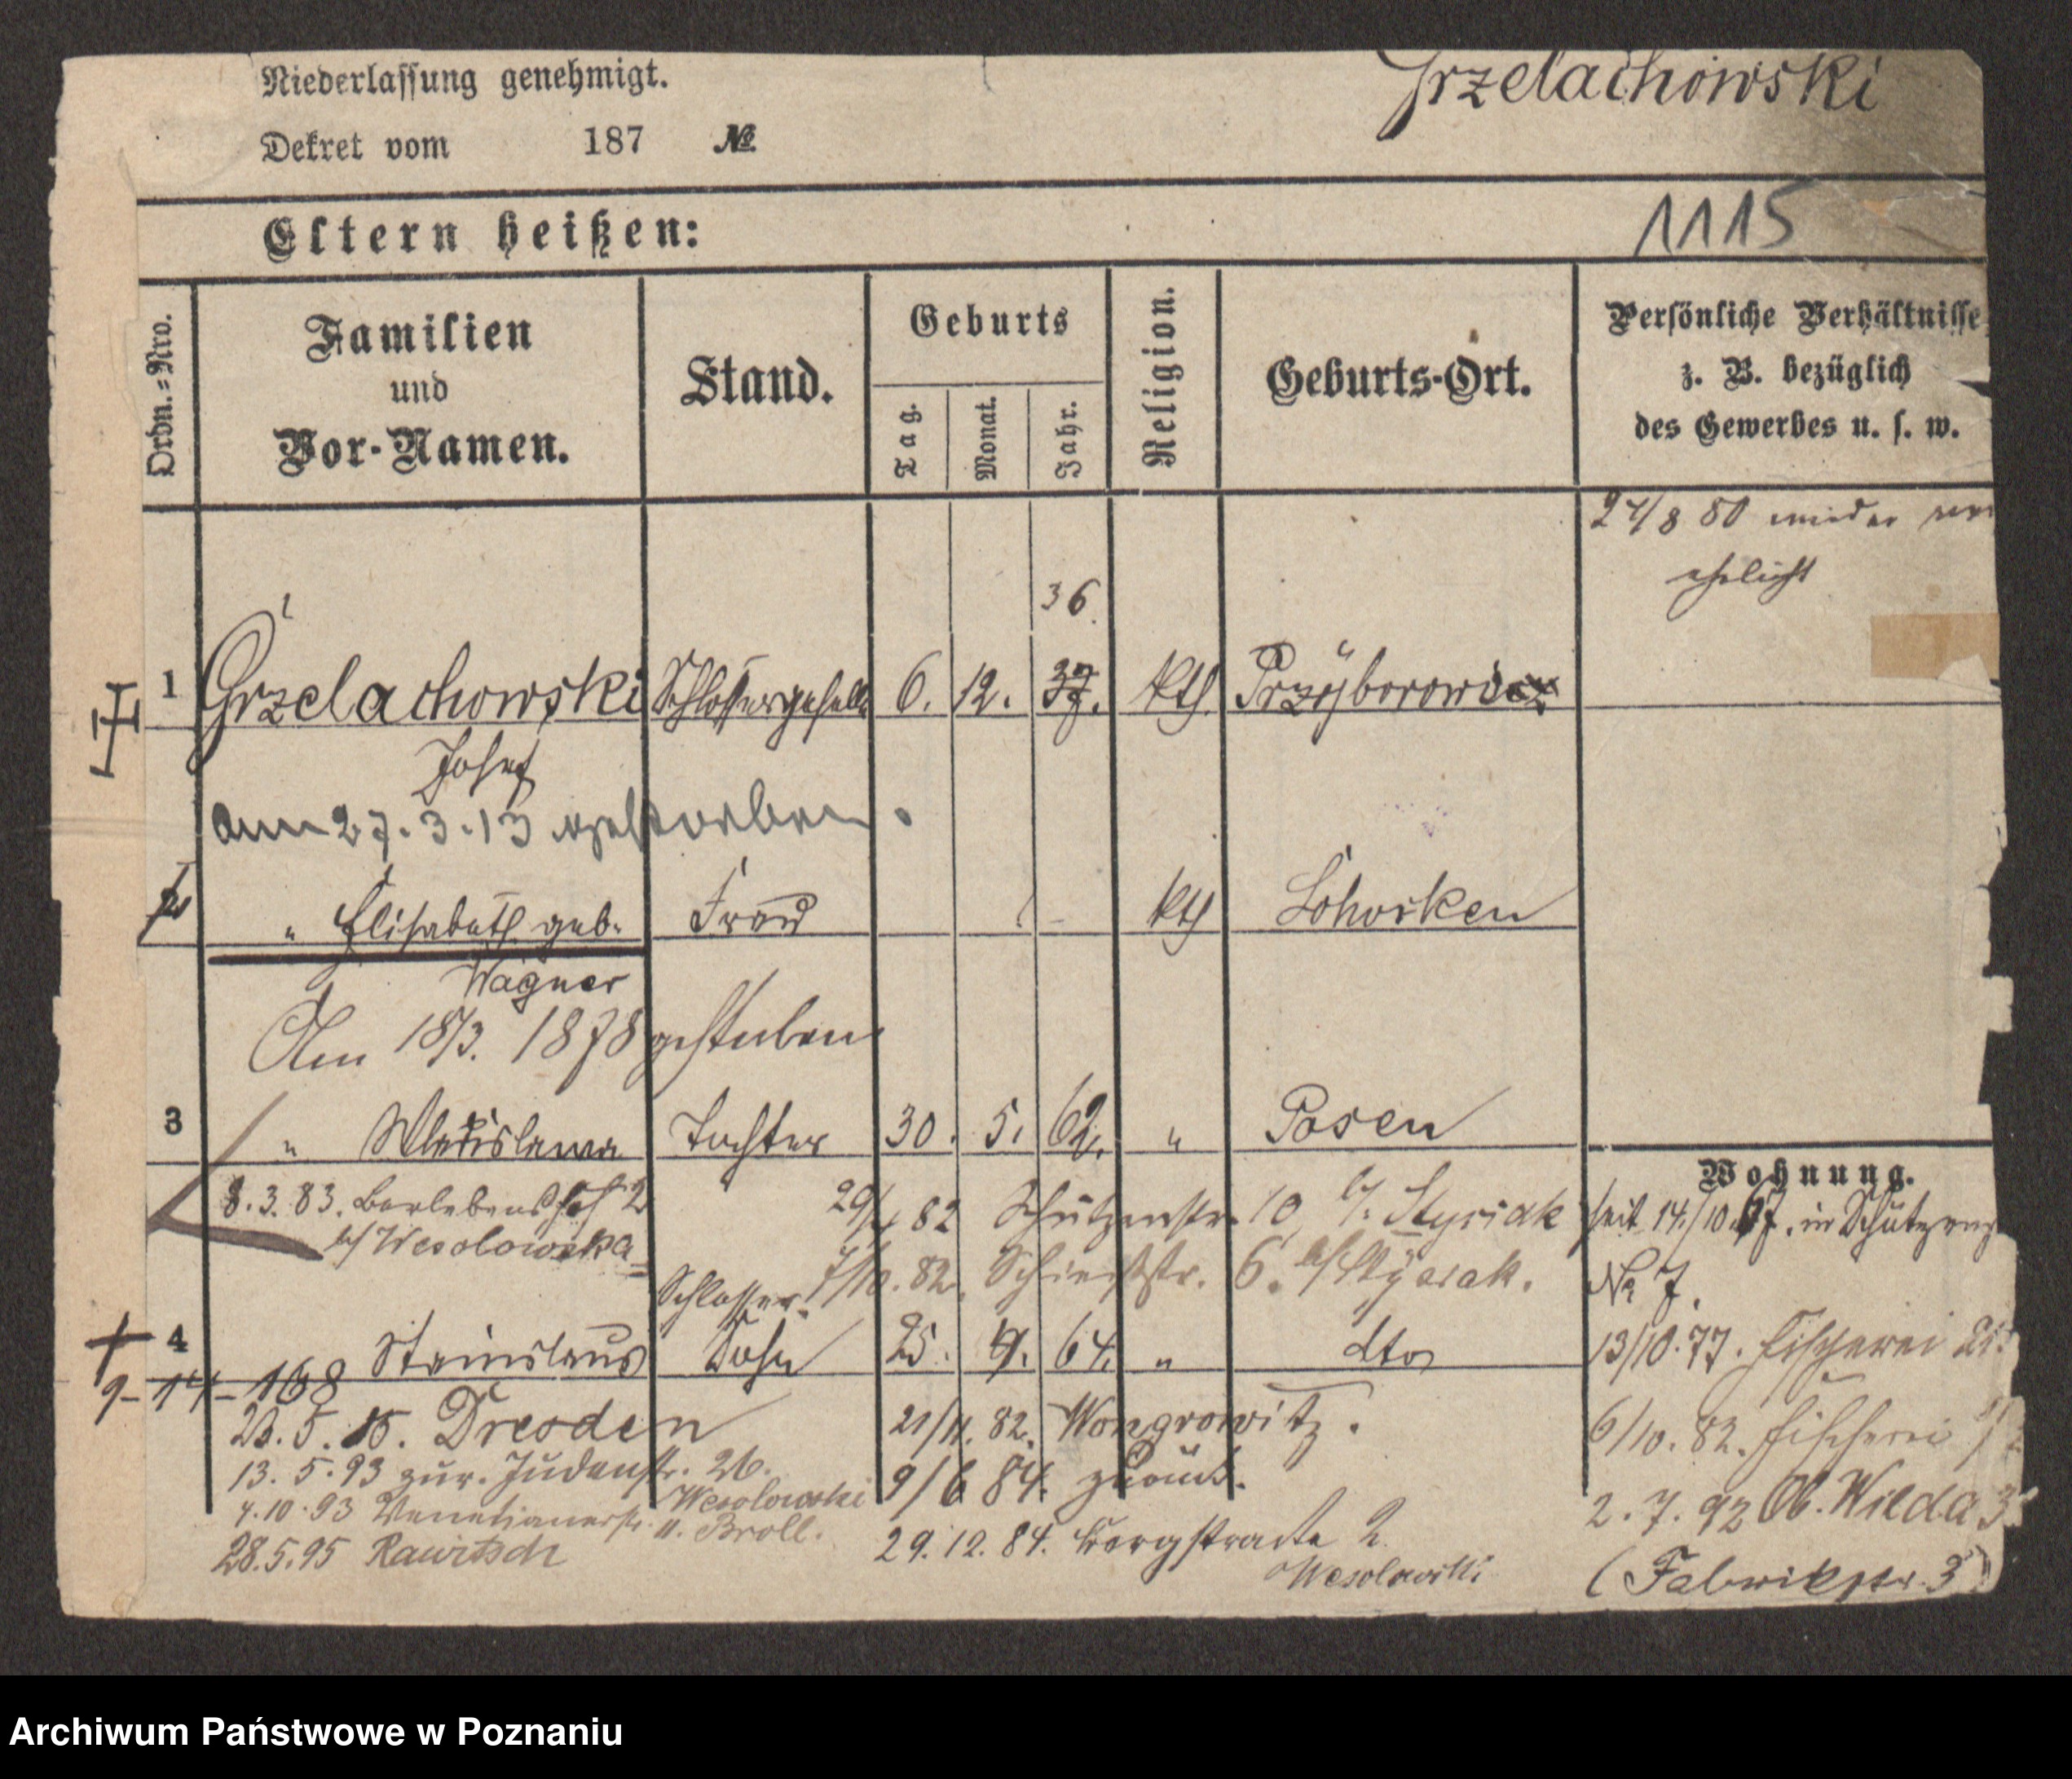 Niederlassung genehmigt.
Grzelachowski
Dekret vom 187 №
Eltern heißen:
1115
Ordn.=Nro.
Familien
und
Vor-Namen.
Stand.
Geburts
Tag.
Monat.
Jahr.
Religion.
Geburts-Ort.
Persönliche Verhältnisse
z. B. bezüglich
des Gewerbes u. s. w.
27/8 80 wieder ver
ehelicht
36.
1 Grzelachowski Schlossergeselle 6. 12. 37. kth. Przyborowicz
Josef
am 27.3.13 gestorben.
" Elisabeth geb. Frau kth Lohocken
Wagner
Am 18/3. 1878 gestorben
3 " Wladislawa Tochter 30. 5. 62. " Posen
8.3.83. Berlebenshof 2
b/ Wesolowska
29/4 82 Schützenstr. 10, b/. Styriak
Schlosser. 7/10. 82. Schiessstr. 6. b/
4 Stanislaus Sohn 25. 9. 64. " dto
9-14-168
23.5.15. Dresden
13.5.93 zur. Judenstr. 26.
Wesolowski
4.10.93 Venetianerstr. 11. Broll.
28.5.95 Rawitsch
21/11. 82. Wongrowitz.
9/6 84. zurück.
29.12.84. Bergstrasse 2
Wesolowski
Wohnung.
seit 14./10.67. in Schützenstr
№ 7.
13/10.77. Fischerei
6/10.82. Fischerei
2.7.92 Ob. Wilda 3
(Fabrikstr. 3)
Archiwum Państwowe w Poznaniu